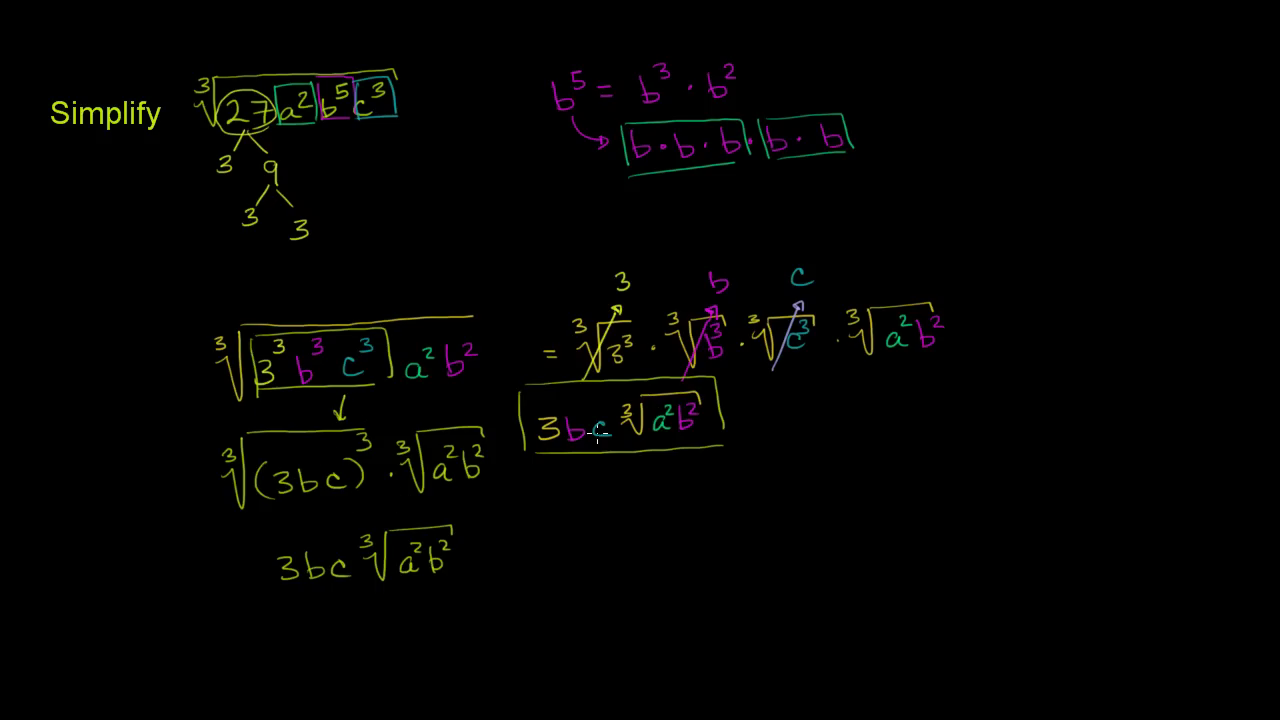 Simplify ∛(27a²b⁵c³)
3 9
3 3
b⁵ = b³ · b²
b · b · b · b · b
∛(3³ b³ c³ a² b²)
3 b c
= ∛(3³) · ∛(b³) · ∛(c³) · ∛(a²b²)
3bc ∛(a²b²)
∛((3bc)³) · ∛(a²b²)
3bc ∛(a²b²)